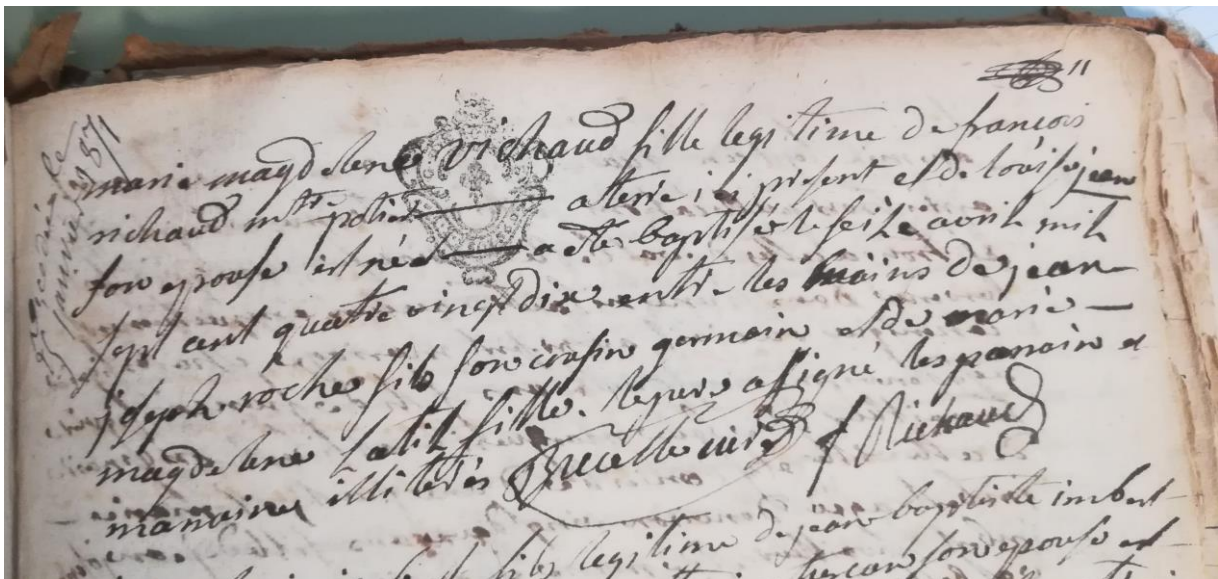 11
Décédée le
janvier 1871
marie magdelene richaud fille legitime de françois
richaud mtre potier a terre ici present et de louise jean
son epouse est née a ete baptisée le seize avril mil
sept cent quatre vingt dix entre les mains de jean
joseph roche fils son cousin germain et de marie
magdelene fille. le pere a signé les parrain et
marraine illiterés f Richaud
fils legitime de jean baptiste imbert
son epouse est